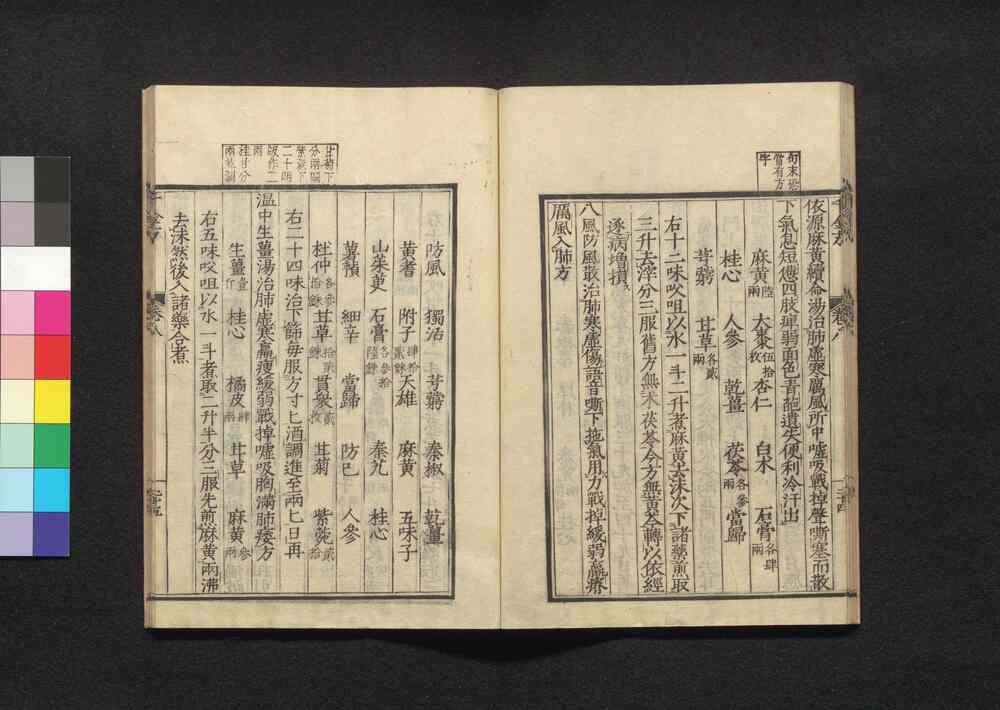 句末恐
當有方
字
千金方
卷八
二十四
依源麻黃續命湯治肺虛寒厲風所中噓吸戰掉聲嘶塞而散
下氣息短憊四肢痺弱面色青葩遺失便利冷汗出
麻黃陸兩 大棗伍拾枚 杏仁 白朮 石膏各肆兩
桂心 人參 乾薑 茯苓各參兩 當歸
芎藭 甘草各貳兩
右十二味㕮咀以水一斗二升煮麻黃去沫次下諸藥煎取
三升去滓分三服舊方無朮茯苓今方無黃芩轉以依經
逐病增損
八風防風散治肺寒虛傷語音嘶下拖氣用力戰掉緩弱羸瘠
厲風入肺方
防風 獨活 芎藭 秦椒 乾薑
黃耆 附子肆拾貳銖 天雄 麻黃 五味子
山茱萸 石膏各參拾陸銖 秦艽 桂心
薯蕷 細辛 當歸 防己 人參
杜仲各參拾銖 甘草拾貳銖 貫衆貳枚 甘菊 紫菀貳拾
右二十四味治下篩每服方寸匕酒調進至兩匕日再
溫中生薑湯治肺虛寒羸瘦緩弱戰掉噓吸胸滿肺痿方
生薑壹斤 桂心 橘皮肆兩 甘草 麻黃參兩
右五味㕮咀以水一斗者取二升半分三服先煎麻黃兩沸
去沫然後入諸藥合煮
千金方
卷八
二十五